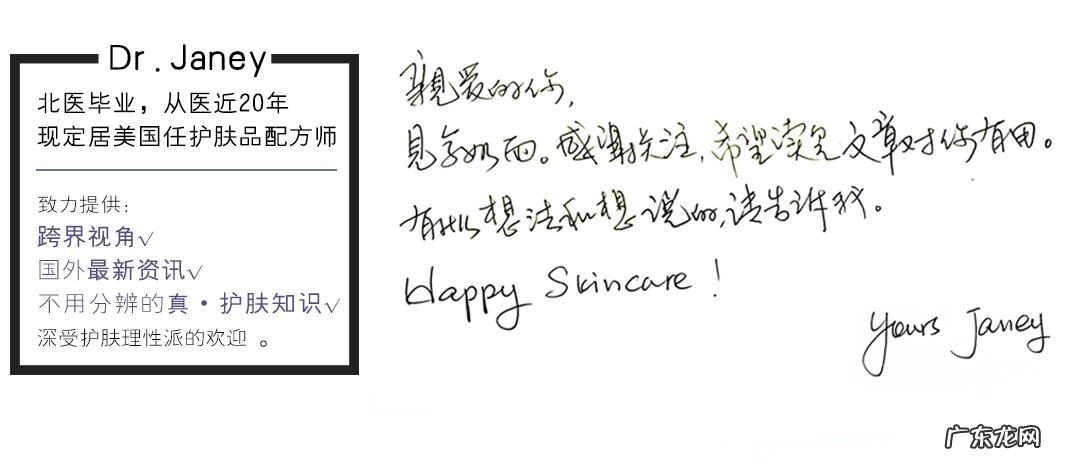 Dr. Janey
北医毕业，从医近20年
现定居美国任护肤品配方师
致力提供：
跨界视角√
国外最新资讯√
不用分辨的真·护肤知识√
深受护肤理性派的欢迎 。
親爱的你，
見字如面。感谢关注，希望读完文章对你有用。
有什么想法和想说的，请告诉我。
Happy Skincare！
Yours Janey
广东龙网